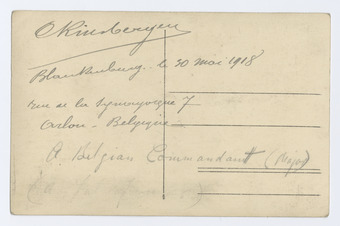 Blankenburg. le 30 mai 1918
rue de la Synagogue 7
Arlon - Belgique
A Belgian Commandant (Major)